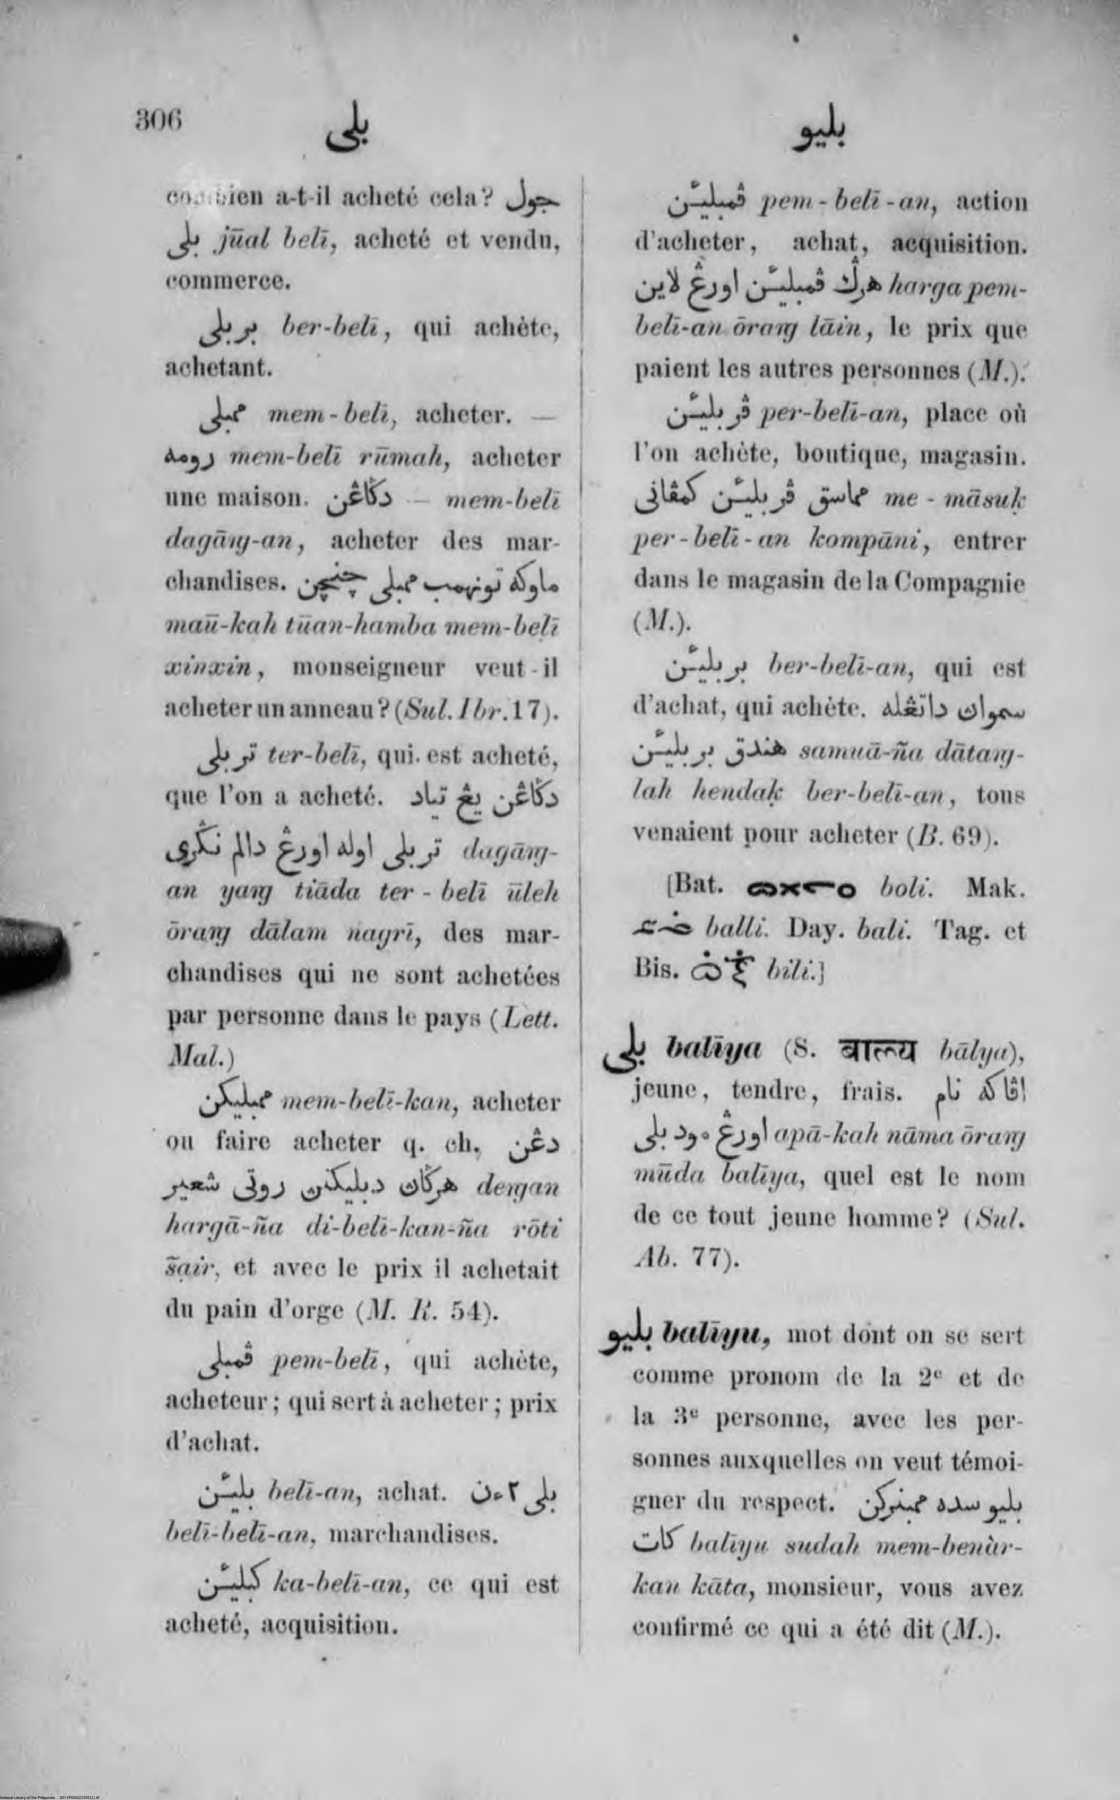 306
بلی
بليو
combien a-t-il acheté cela? جول
بلی jūal belī, acheté et vendu,
commerce.
بربلی ber-belī, qui achète,
achetant.
ممبلی mem-belī, acheter. —
رومه mem-belī rūmah, acheter
une maison. دݢاڠن — mem-belī
dagāŋ-an, acheter des mar-
chandises. ماوكه تونهمب ممبلی چنچن
maū-kah tūan-hamba mem-belī
xinxin, monseigneur veut-il
acheter un anneau? (Sul. Ibr. 17).
تربلی ter-belī, qui est acheté,
que l'on a acheté. دݢاڠن يڠ تياد
تربلی اوله اورڠ دالم نݢری dagāŋ-
an yaŋ tiāda ter-belī ūleh
ōraŋ dālam nagrī, des mar-
chandises qui ne sont achetées
par personne dans le pays (Lett.
Mal.)
ممبليكن mem-belī-kan, acheter
ou faire acheter q. ch. دڠن
هرݢاڽ دبليكنڽ روتی شعير deŋan
hargā-ña di-belī-kan-ña rōti
šaīr, et avec le prix il achetait
du pain d'orge (M. R. 54).
ڤمبلی pem-belī, qui achète,
acheteur; qui sert à acheter; prix
d'achat.
بليئن belī-an, achat. بلی ٢ ءن
belī-belī-an, marchandises.
كبليئن ka-belī-an, ce qui est
acheté, acquisition.
ڤمبليئن pem-belī-an, action
d'acheter, achat, acquisition.
هرݢ ڤمبليئن اورڠ لاين harga pem-
belī-an ōraŋ lāin, le prix que
paient les autres personnes (M.).
ڤربليئن per-belī-an, place où
l'on achète, boutique, magasin.
مماسق ڤربليئن كمڤانی me-māsuḳ
per-belī-an kompāni, entrer
dans le magasin de la Compagnie
(M.).
بربليئن ber-belī-an, qui est
d'achat, qui achète. سمواڽ داتڠله
هندق بربليئن samuā-ña dātaŋ-
lah hendaḳ ber-belī-an, tous
venaient pour acheter (B. 69).
[Bat. boli. Mak.
balli. Day. bali. Tag. et
Bis. bili.]
بلی balīya (S. बाल्य bālya),
jeune, tendre, frais. اڤاكه نام
اورڠ مود بلی apā-kah nāma ōraŋ
mūda balīya, quel est le nom
de ce tout jeune homme? (Sul.
Ab. 77).
بليو balīyu, mot dont on se sert
comme pronom de la 2e et de
la 3e personne, avec les per-
sonnes auxquelles on veut témoi-
gner du respect. بليو سده ممبنركن
كات balīyu sudah mem-benàr-
kan kāta, monsieur, vous avez
confirmé ce qui a été dit (M.).